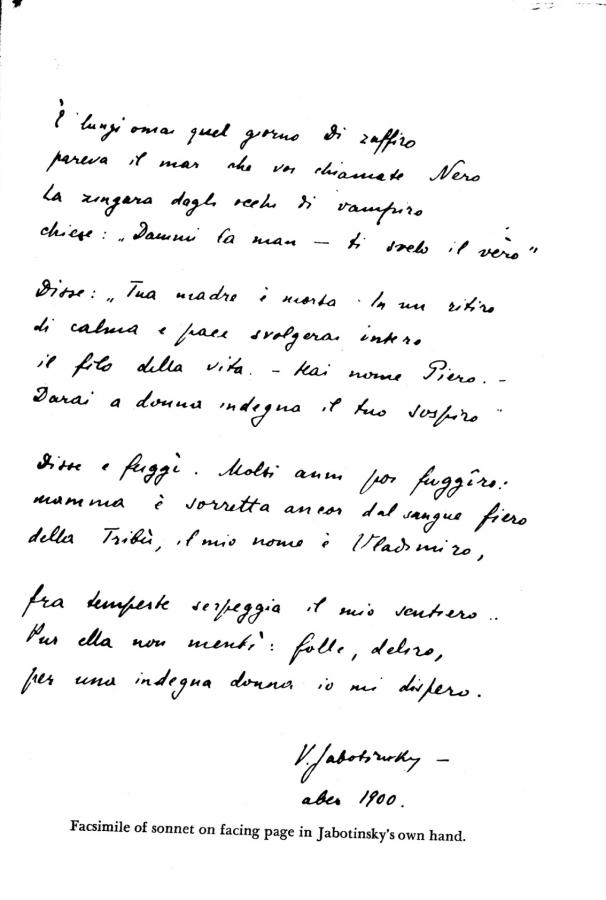 È lungi omai quel giorno di zaffiro
pareva il mar che voi chiamate Nero
La zingara dagli occhi di vampiro
chiese: „Dammi la man — ti svelo il vèro"
Disse: „Tua madre è morta. In un ritiro
di calma e pace svolgerai intero
il filo della vita. — Hai nome Piero. —
Darai a donna indegna il tuo sospiro"
Disse e fuggì. Molti anni poi fuggîro:
mamma è sorretta ancor dal sangue fiero
della Tribù, il mio nome è Vladimiro,
fra tempeste serpeggia il mio sentiero..
Pur ella non mentì: folle, deliro,
per una indegna donna io mi dispero.
V. Jabotinsky —
1900.
Facsimile of sonnet on facing page in Jabotinsky's own hand.